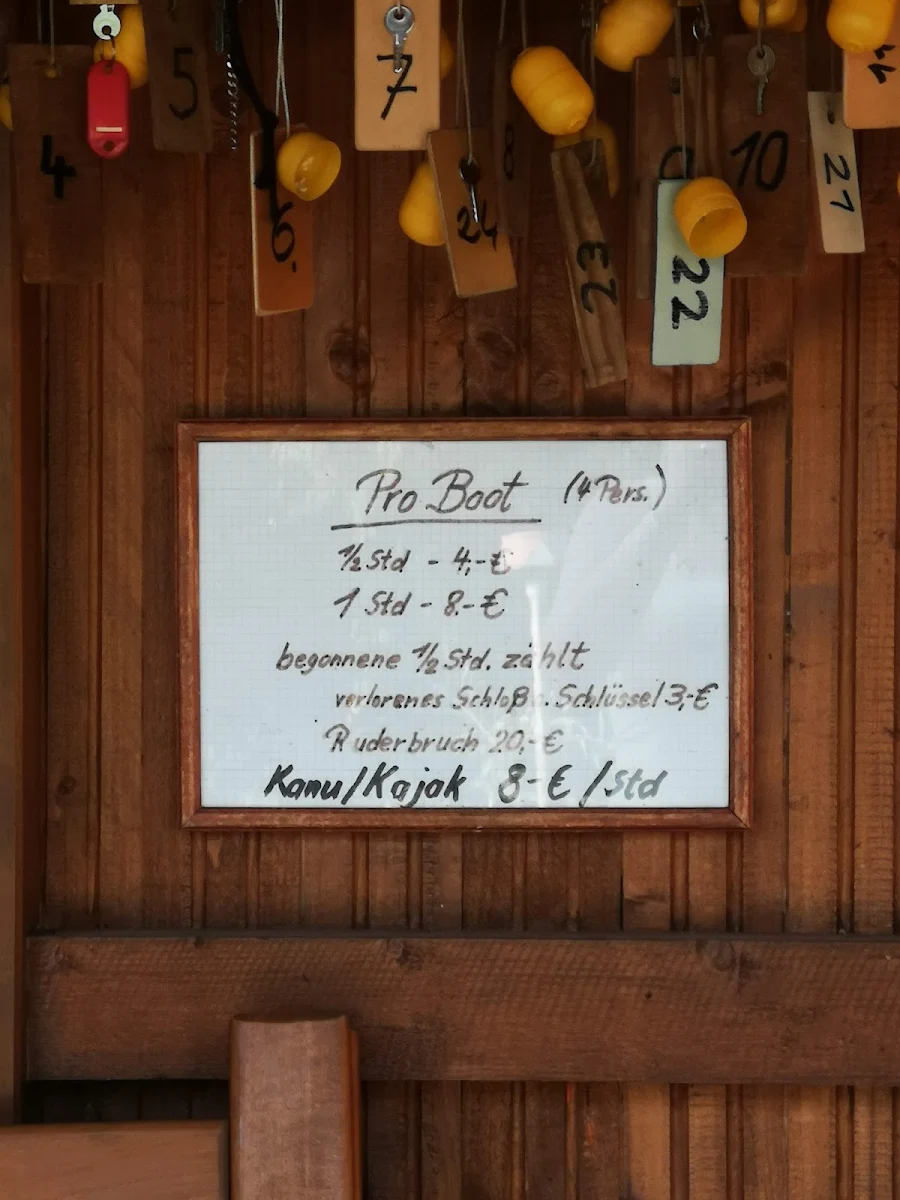 4
5
7
6.
24
8
23
22
10
21
Pro Boot (4 Pers.)
1/2 Std - 4,-€
1 Std - 8.-€
begonnene 1/2 Std. zählt
verlorenes Schloß o. Schlüssel 3,-€
Ruderbruch 20,-€
Kanu/Kajak 8-€ /Std